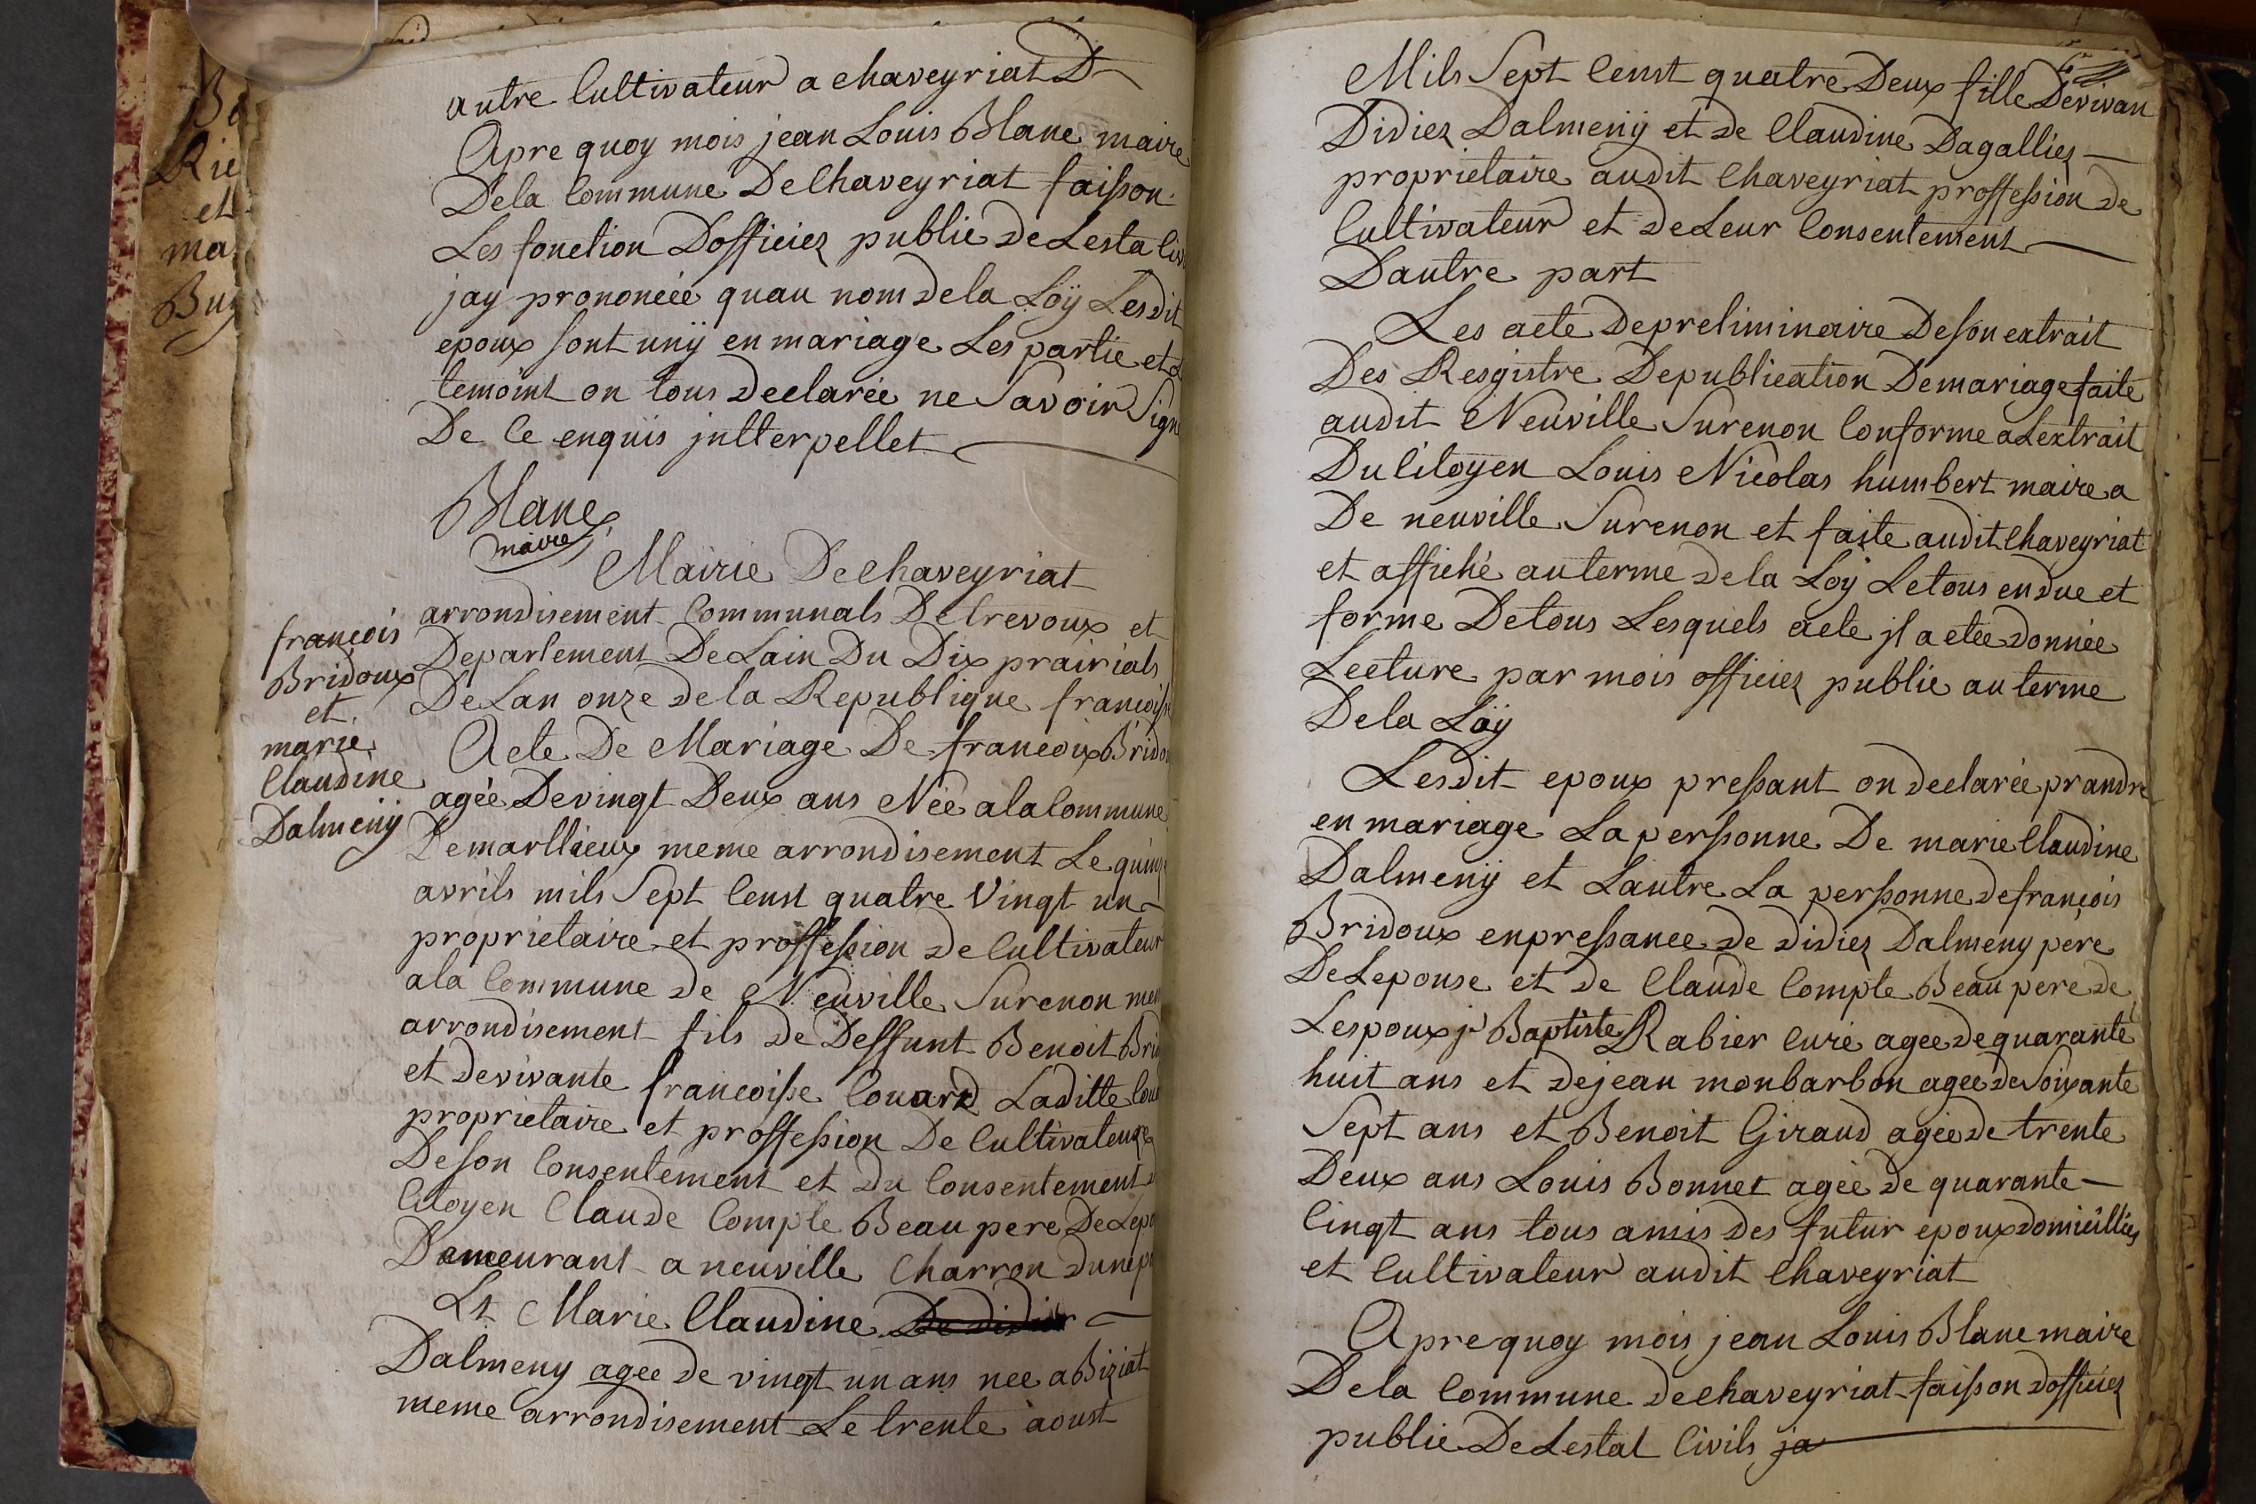 autre Cultivateur a chaveyriat D
Apre quoy mois jean Louis Blanc maire
Dela Commune De Chaveyriat faisson
Les fonction Dofficiez public De Lesta Civ
jay prononcéé quau nom dela Loÿ Les dit
epoux sont unÿ en mariage Les partie et
temoint on tous Declarée ne Savoir Sign
De Ce enquis jntterpellet
Blanc
maire
Mairie De Chaveyriat
arrondisement Communals De trevoux et
Departement De Lain Du Dix prairials
De Lan onze de la Republique francoisse
francois
Bridoux
et
marie
Claudine
Dalmenÿ
Acte De Mariage De francoix Brido
agée De vingt Deux ans Née a la Commune
Demarllieux meme arrondisement Le quinz
avrils mils Sept Censt quatre Vingt un
proprietaire et proffession de Cultivateur
a la Commune de Neuville Surenon mem
arrondisement fils de Deffunt Benoit Brid
et de vivante francoisse Couard Laditte Cou
proprietaire et proffession De Cultivateur
De son Consentement et du Consentement
Citoyen Claude Comple Beau pere De Lepo
Demeurant a neuville Charron dune p
Et Marie Claudine De didier
Dalmeny agee de vingt un ans nee a Biziat
meme arrondisement Le trente aoust
Mils Sept Censt quatre Deux fille De vivan
Didiez Dalmenÿ et de Claudine Dagalliez
proprietaire audit Chaveyriat proffession de
Cultivateur et de Leur Consentement
Dautre part
Les acte De preliminaire De son extrait
Des Resgistre De publication De mariage faite
audit Neuville Surenon Conforme a Lextrait
Du Citoyen Louis Nicolas humbert maire a
De neuville Surenon et faite audit Chaveyriat
et affiché au terme de la Loÿ Le tous en due et
forme De tous Lesquels acte jl a etée donnée
Lecture par mois officiez public au terme
De la Loÿ
Lesdit epoux pressant on declarée prandre
en mariage La perssonne De marie Claudine
Dalmenÿ et Lautre La perssonne de françois
Bridoux en pressance de didiez Dalmeny pere
De Lepouse et de Claude Comple Beau pere de
Lespoux jn Baptiste Rabier Curé agee de quarante
huit ans et de jean monbarbon agee de Soixante
Sept ans et Benoit Giraud agée de trente
Deux ans Louis Bonnet agée de quarante
Cinqt ans tous amis des futur epoux domicilliez
et Cultivateur audit Chaveyriat
Apre quoy mois jean Louis Blanc maire
De la Commune de Chaveyriat faisson dofficiez
public De Lestat Civils ja